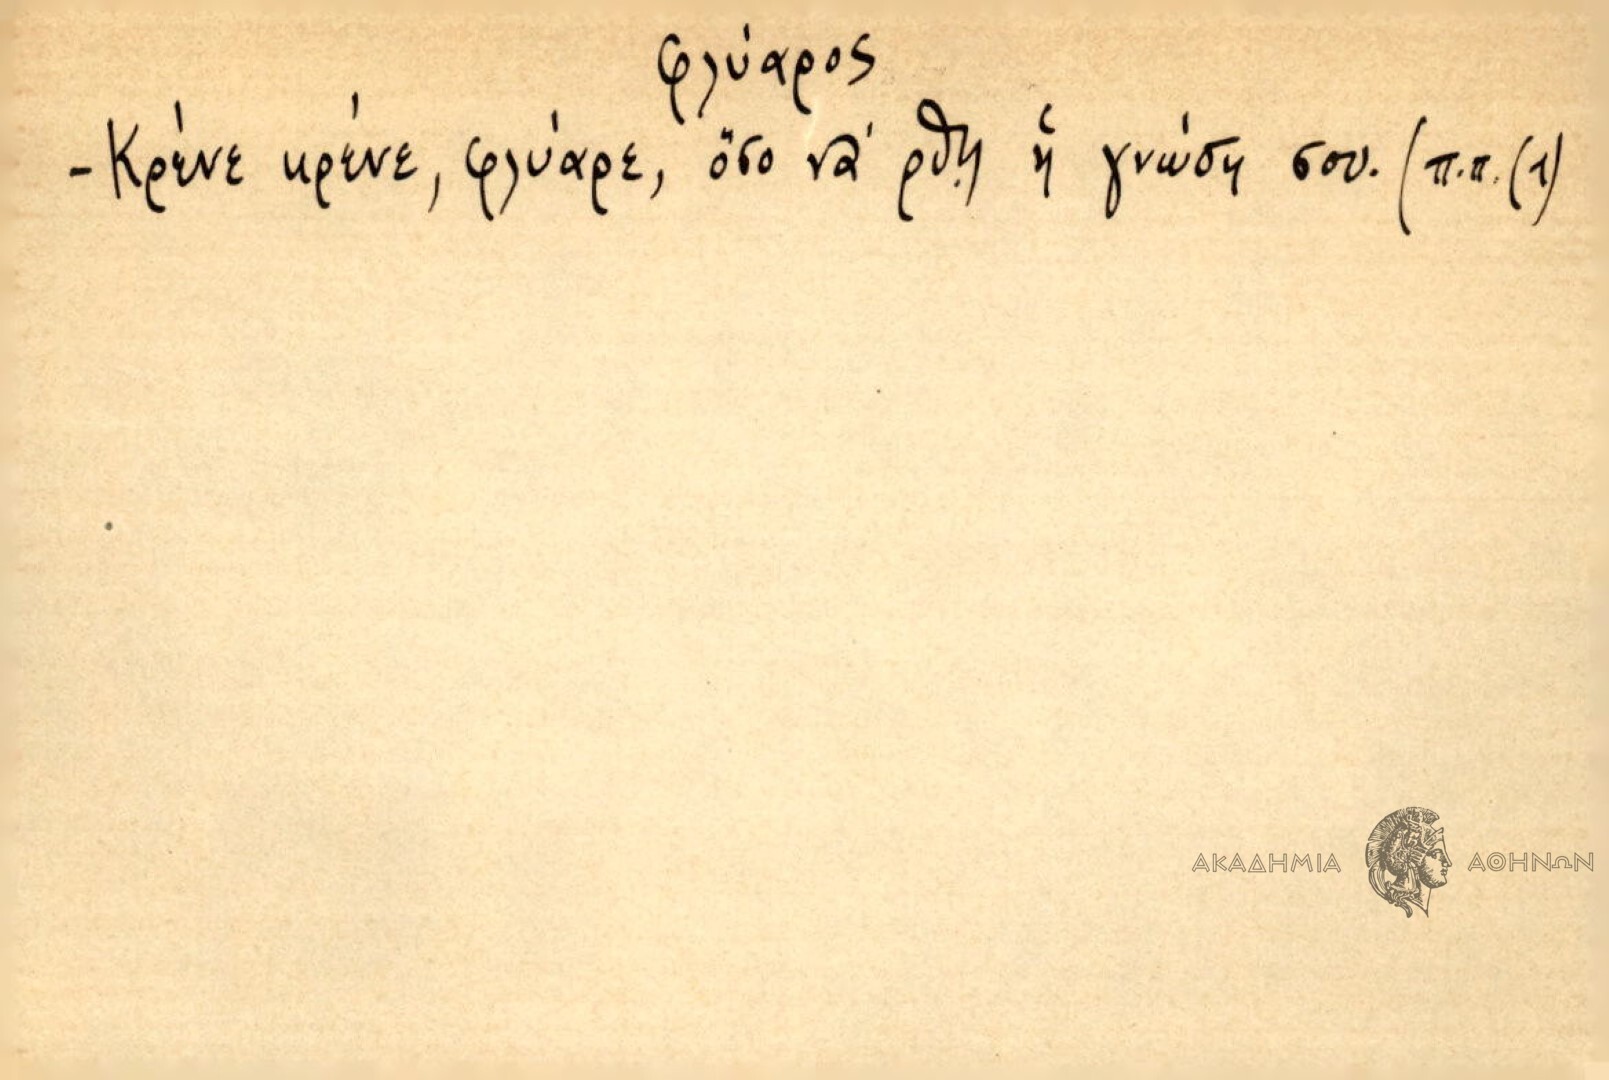 φλύαρος
- Κρένε κρένε, φλύαρε, ὅσο νἄ ρθῃ ἡ γνώση σου. (π.π. (1)
ΑΚΑΔΗΜΙΑ ΑΘΗΝΩΝ